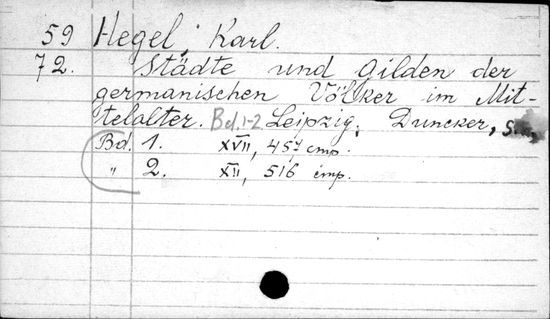 59 Hegel, Karl.
72. Städte und Gilden der
germanischen Völker im Mit-
telalter. Bd.1-2 Leipzig, Duncker,
Bd. 1. XVII, 457 cmp.
" 2. XII, 516 cmp.